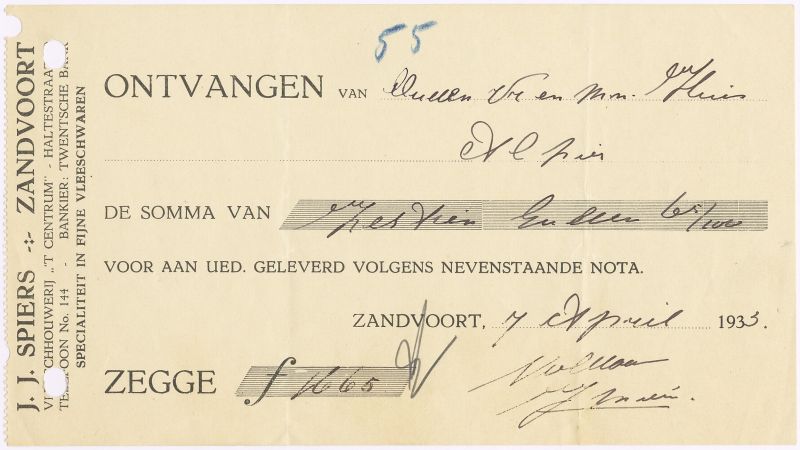 J. J. SPIERS -:- ZANDVOORT
CHHOUWERIJ „'T CENTRUM" - HALTESTRAAT
TELEFOON No. 144 - BANKIER: TWENTSCHE BANK
SPECIALITEIT IN FIJNE VLEESCHWAREN
55
ONTVANGEN VAN Ouden en Huis
DE SOMMA VAN Zestien Gulden 65/100
VOOR AAN UED. GELEVERD VOLGENS NEVENSTAANDE NOTA.
ZANDVOORT, 7 April 1933.
ZEGGE f 1665
Voldaan